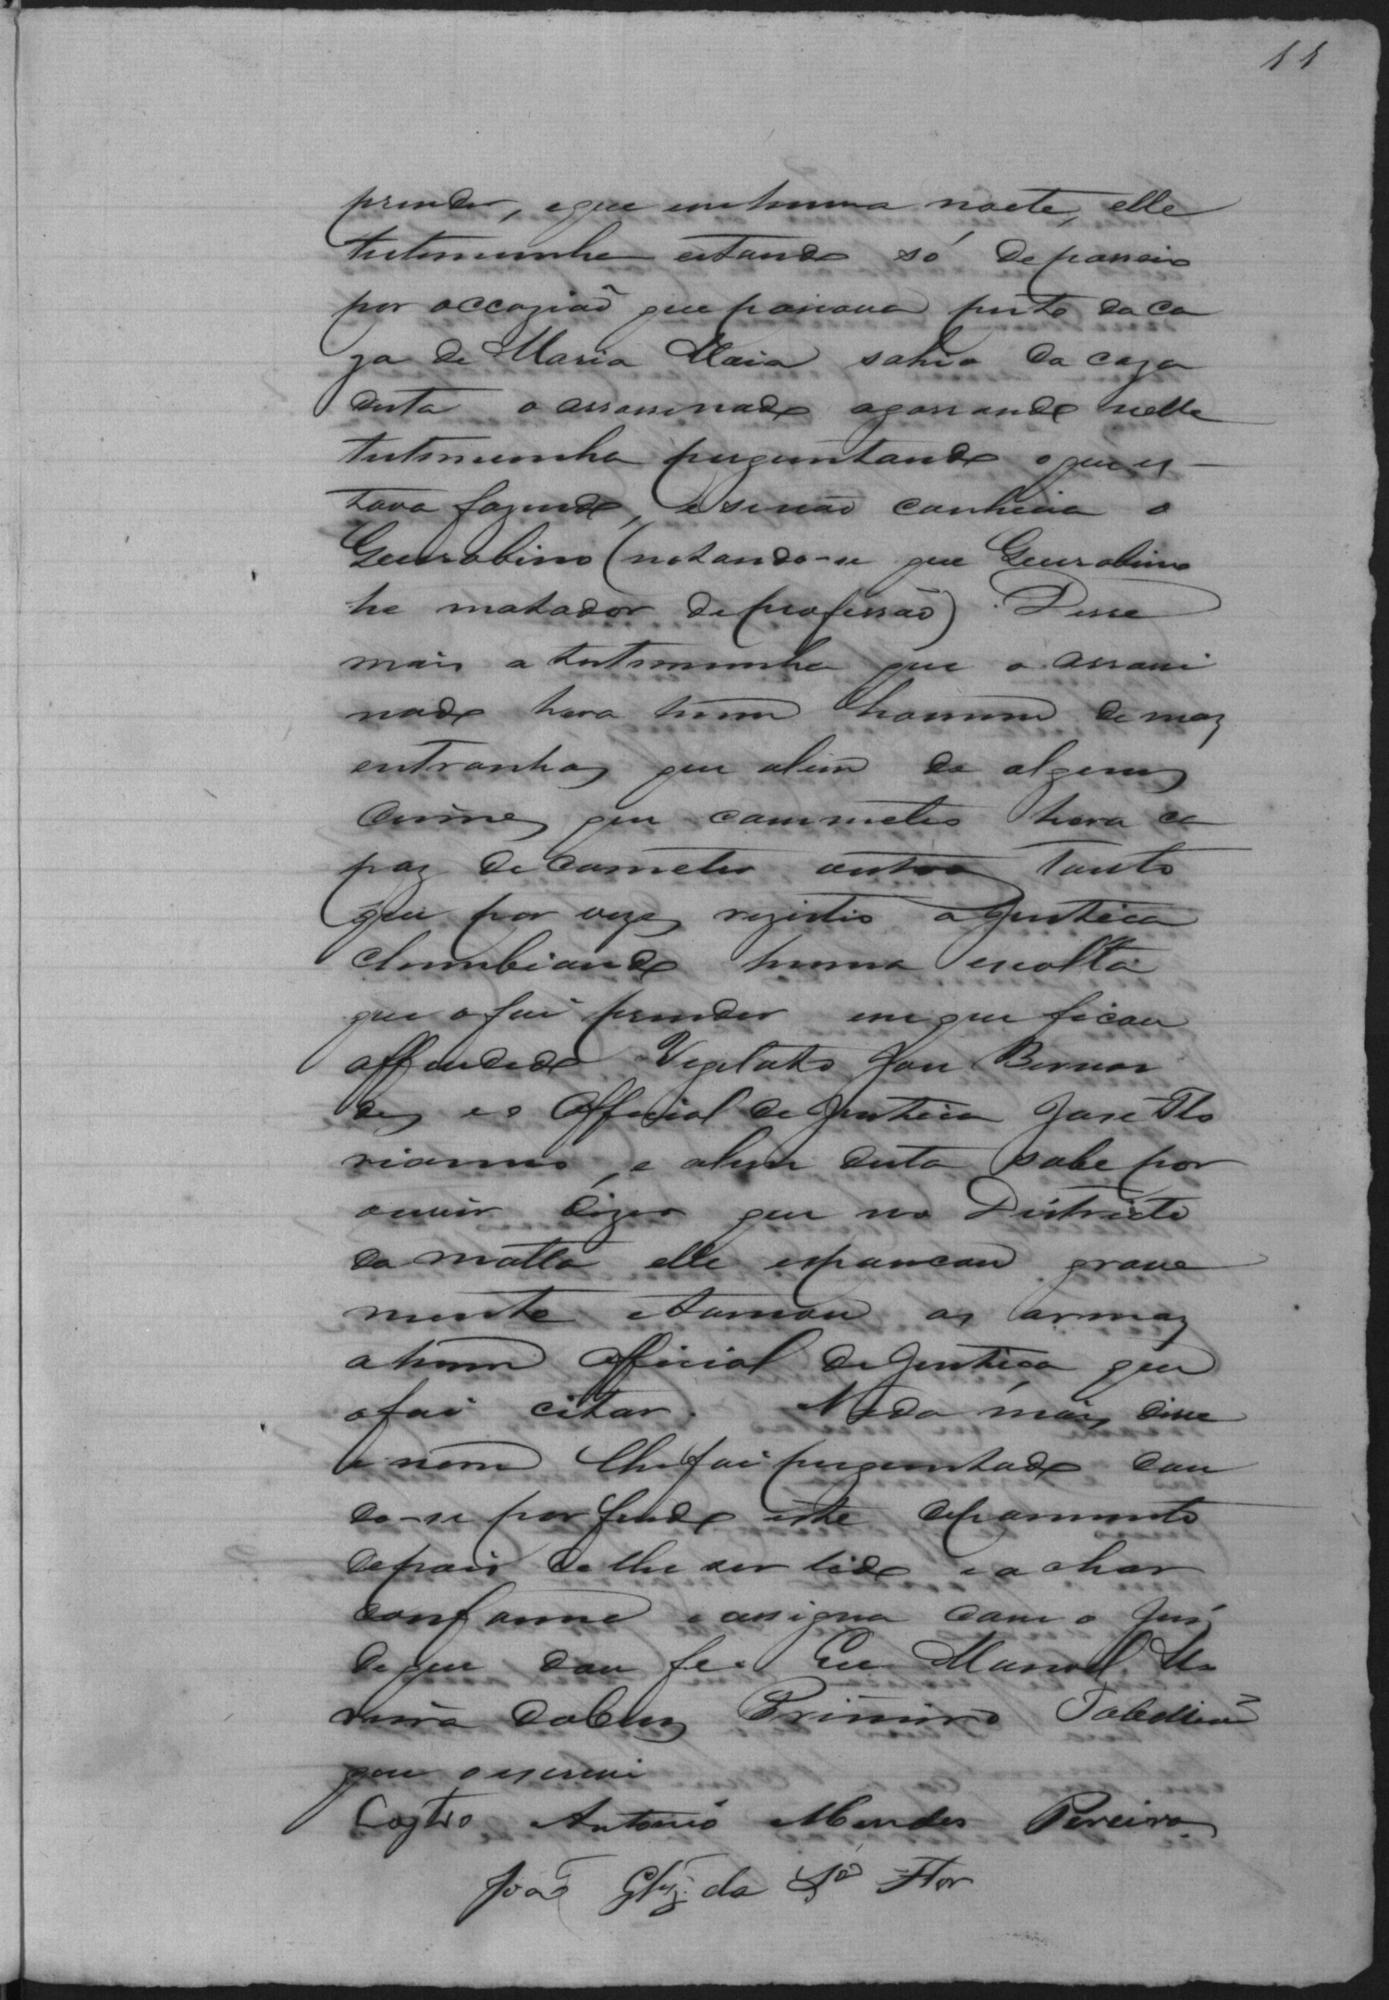 11
prender, eque em huma noute, elle
testemunha estando só depasseio
por occazião que passava perto da ca
za de Maria Maia sahio da caza
desta o assassinado agarrando nelle
testemunha perguntando oque es-
tava fazendo, e senão conhecia o
Geurabino (notando-se que Geurabino
he matador deprofissão). Disse
mais a testemunha que o assaci
nado hera hum homem de maz
entranhaz que alem de algunz
Crimez que commeteo hera ca
paz de cometer outroz tanto
que por vezez rezistio ajustiça
chumbiando huma escolta
que o foi prender em que ficou
offendido Vigilato José Bernar
dez eo Official de Justiça José Flo
rianno, e alem desta sabe por
ouvir dizer que no Districto
da matta elle espancou grave
mente etomou as armaz
ahum Official de Justiça que
ofoi citar. Nada maiz disse
e nem lhe foi perguntado dan
do-se por findo este depoimento
depois de lhe ser lido e achar
conforme e assigna com o Juiz
de que dou fe. Eu Manoel
da Cruz Primeiro Tabellião
que o escrevi
Castro Antonio Mendes Pereira
João Glz. da Flor